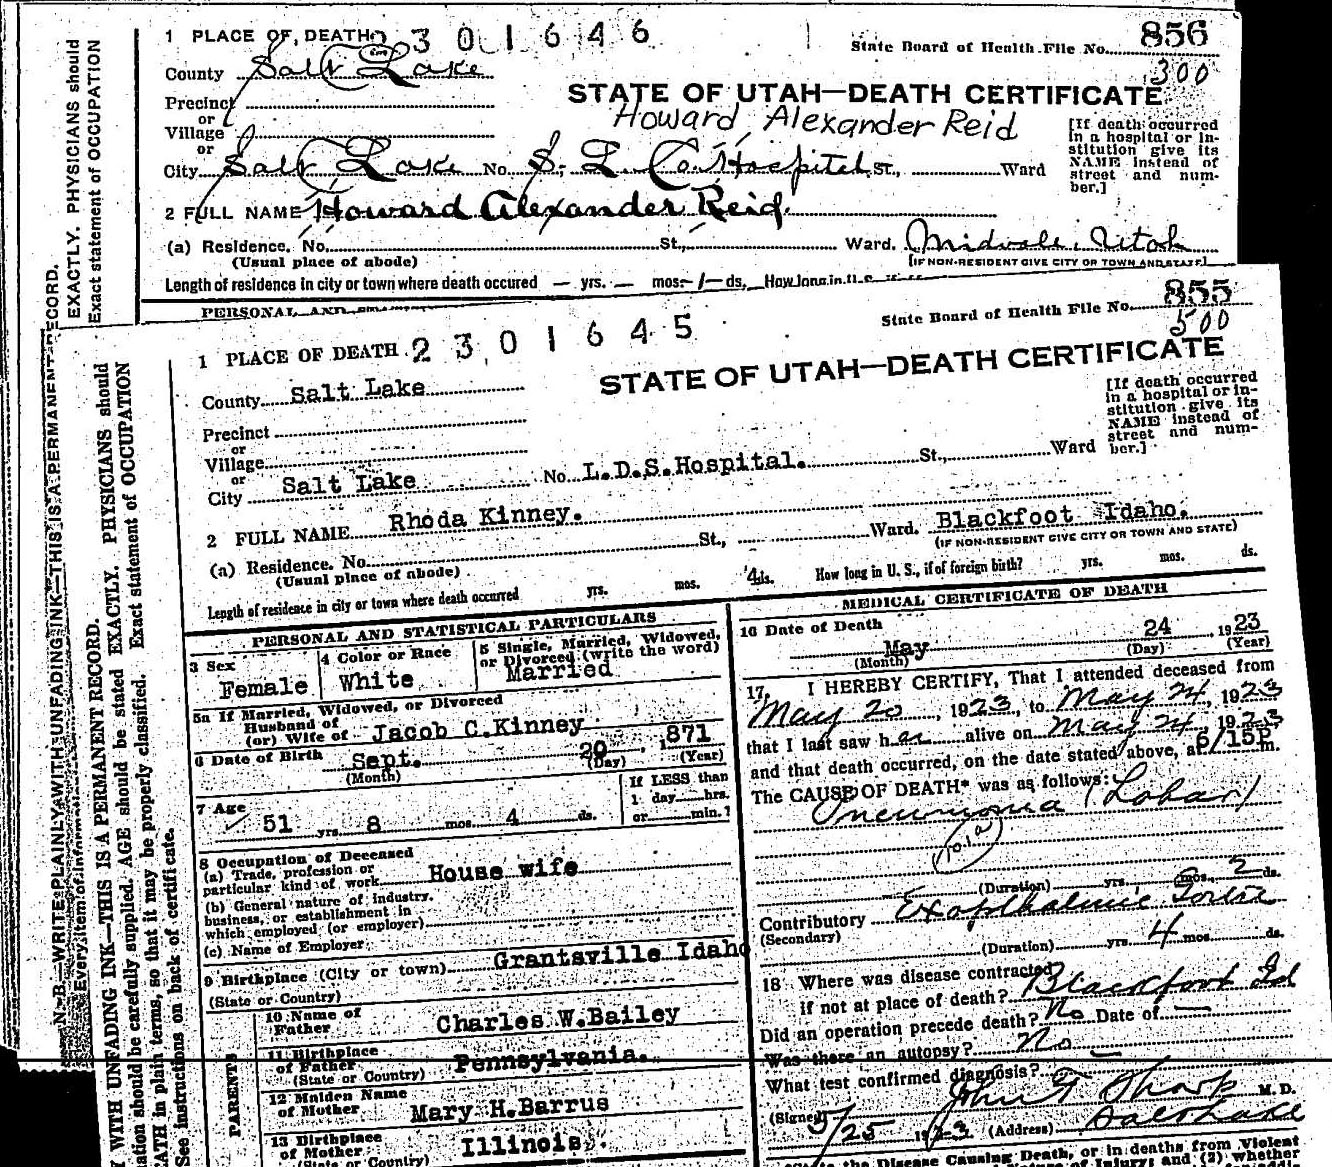 1 PLACE OF DEATH 2301646
State Board of Health File No. 856
300
County Salt Lake
STATE OF UTAH—DEATH CERTIFICATE
Precinct
Howard Alexander Reid
or
Village
or
City Salt Lake No. S. L. Co. Hospital St., Ward
[If death occurred
in a hospital or in-
stitution give its
NAME instead of
street and num-
ber.]
2 FULL NAME Howard Alexander Reid.
(a) Residence. No. St., Ward. Midvale, Utah
(Usual place of abode)
[IF NON-RESIDENT GIVE CITY OR TOWN AND STATE]
Length of residence in city or town where death occured — yrs. — mos. 1 ds. How long in U.S., if
PERSONAL AND
EXACTLY. PHYSICIANS should
Exact statement of OCCUPATION
N. B.—WRITE PLAINLY WITH UNFADING INK—THIS IS A PERMANENT RECORD.
Every item of information
1 PLACE OF DEATH 2301645
State Board of Health File No. 855
500
County Salt Lake
STATE OF UTAH—DEATH CERTIFICATE
Precinct
or
Village
or
City Salt Lake No. L.D.S.Hospital. St., Ward
[If death occurred
in a hospital or in-
stitution give its
NAME instead of
street and num-
ber.]
2 FULL NAME Rhoda Kinney.
(a) Residence. No. St., Ward. Blackfoot Idaho.
(Usual place of abode)
(IF NON-RESIDENT GIVE CITY OR TOWN AND STATE)
Length of residence in city or town where death occurred yrs. mos. 4 ds. How long in U. S., if of foreign birth? yrs. mos. ds.
PERSONAL AND STATISTICAL PARTICULARS
3 Sex
Female
4 Color or Race
White
5 Single, Married, Widowed,
or Divorced (write the word)
Married
5a If Married, Widowed, or Divorced
Husband of
(or) Wife of Jacob C.Kinney
6 Date of Birth Sept. 20 1871
(Month) (Day) (Year)
7 Age
51 yrs. 8 mos. 4 ds.
If LESS than
1 day hrs.
or min.?
8 Occupation of Deceased
(a) Trade, profession or
particular kind of work House wife
(b) General nature of industry.
business, or establishment in
which employed (or employer)
(c) Name of Employer
9 Birthplace (City or town) Grantsville Idaho
(State or Country)
PARENTS
10 Name of
Father Charles W.Bailey
11 Birthplace
of Father Pennsylvania.
(State or Country)
12 Maiden Name
of Mother Mary H.Barrus
13 Birthplace
of Mother Illinois.
(State or Country)
MEDICAL CERTIFICATE OF DEATH
16 Date of Death
May 24 1923
(Month) (Day) (Year)
17. I HEREBY CERTIFY, That I attended deceased from
May 20, 1923, to May 24, 1923
that I last saw her alive on May 24, 1923
and that death occurred, on the date stated above, at 8/15P m.
The CAUSE OF DEATH* was as follows:
Pneumonia (Lobar)
101a
(Duration) yrs. mos. 2 ds.
Contributory Exopthalmic Goitre
(Secondary)
(Duration) yrs. 4 mos. ds.
18 Where was disease contracted
if not at place of death? Blackfoot Id
Did an operation precede death? No Date of —
Was there an autopsy? No
What test confirmed diagnosis? —
(Signed) John F Sharp M. D.
5/25 1923 (Address) Salt Lake
the Disease Causing Death, or in deaths from Violent
of Injury; and (2) whether
WITH UNFADING INK—THIS IS A PERMANENT RECORD.
should be carefully supplied. AGE should be stated EXACTLY. PHYSICIANS should
in plain terms, so that it may be properly classified. Exact statement of OCCUPATION
See instructions on back of certificate.